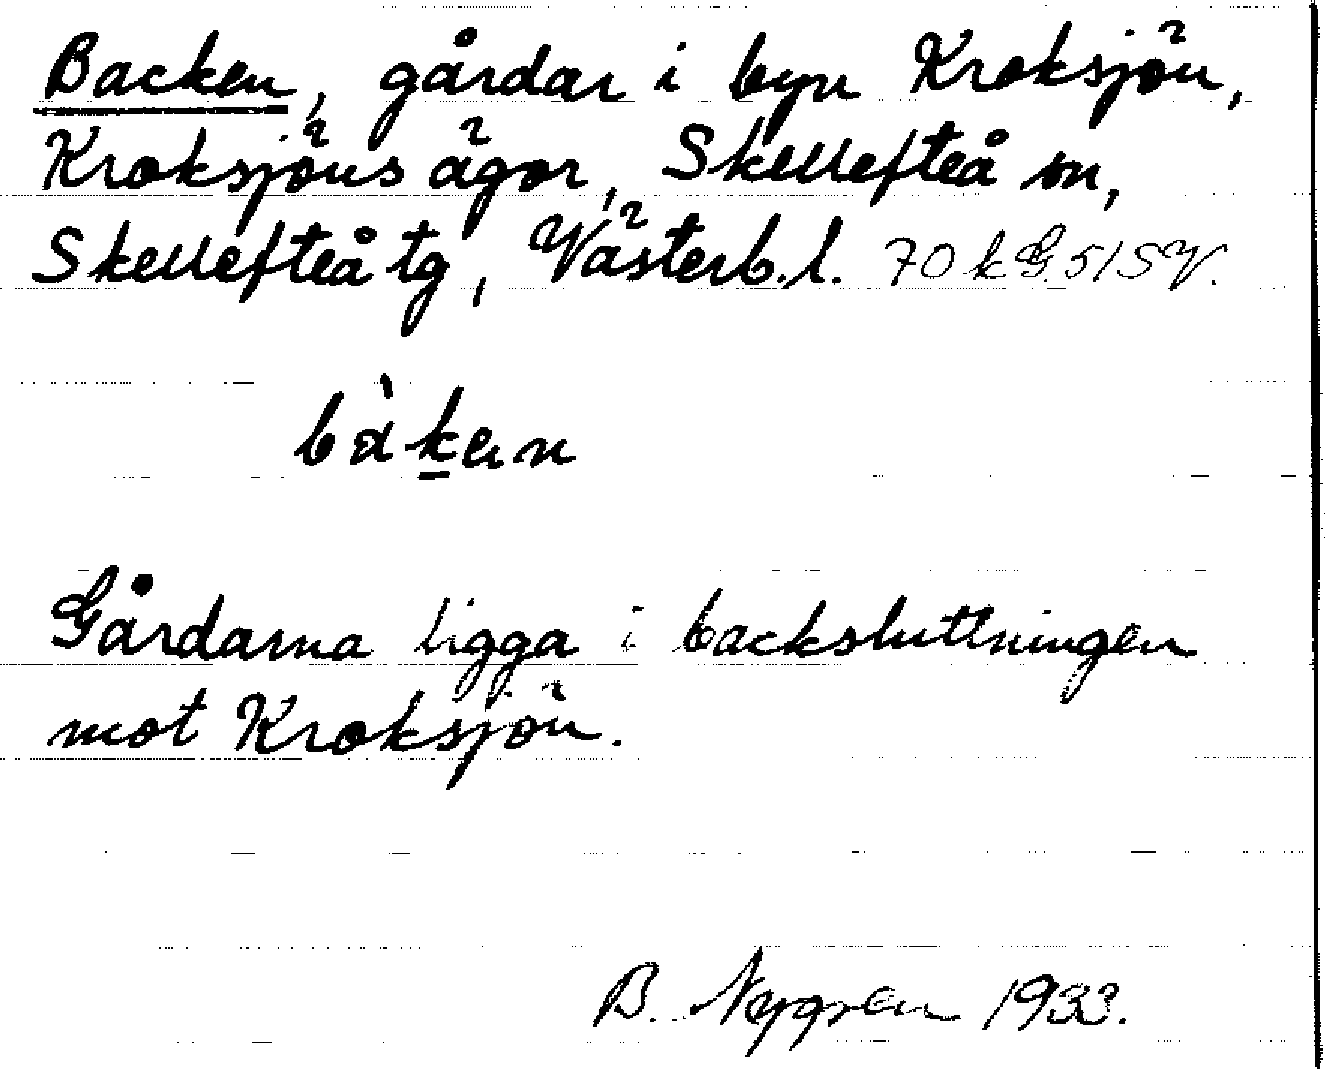 Backen, gårdar i byn Kroksjön,
Kroksjöns ägor, Skellefteå sn,
Skellefteå tg, Västerb.l. 70 k G. 5/SV.
bàk̲en
Gårdarna ligga i backsluttningen
mot Kroksjön.
B. Nygren 1933.